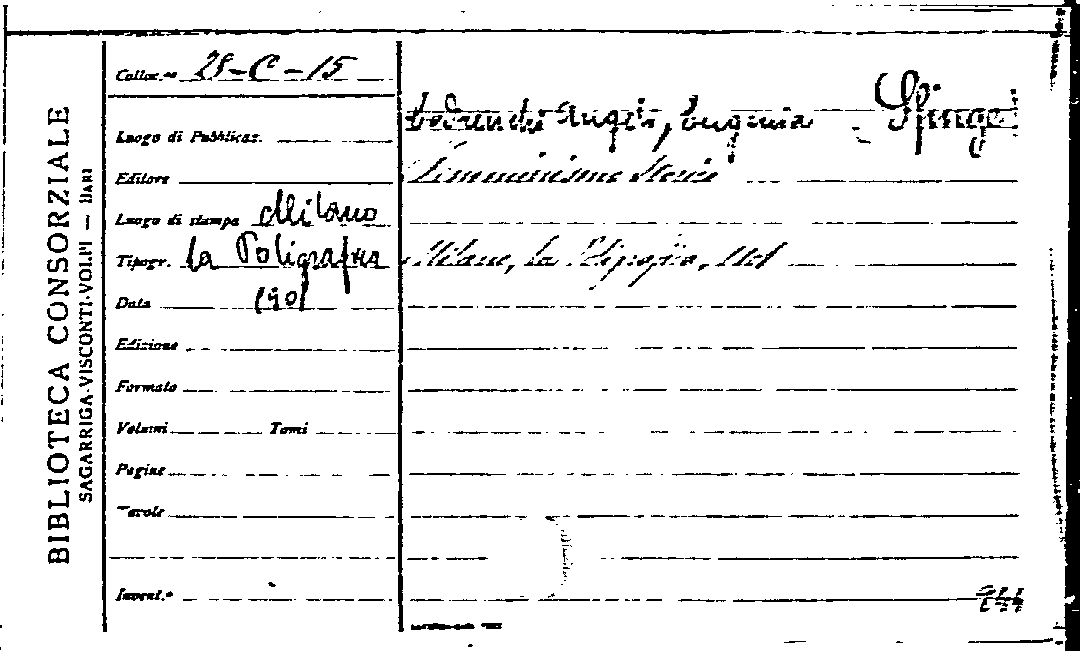 BIBLIOTECA CONSORZIALE
SAGARRIGA-VISCONTI-VOLPI — BARI
Colloc.ne 28-C-15
Luogo di Pubblicaz.
Editore
Luogo di stampa Milano
Tipogr. La Poligrafica
Data 1901
Edizione
Formato
Volumi Tomi
Pagine
Tavole
Invent.o
Eugenia Sfinge
Femminismo Storico
Milano, La Poligrafica, 1901